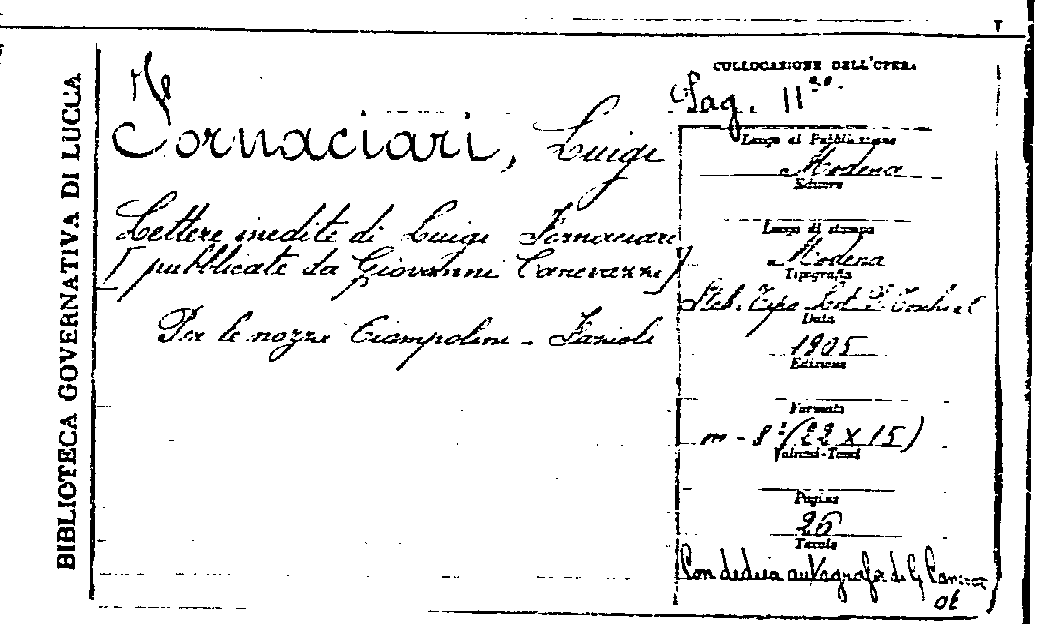 BIBLIOTECA GOVERNATIVA DI LUCCA
Fornaciari, Luigi
Lettere inedite di Luigi Fornaciari
[pubblicate da Giovanni Canevazzi]
Per le nozze Ciampolini - Fasioli
COLLOCAZIONE DELL'OPERA
11
Luogo di Pubblicazione
Modena
Editore
Luogo di stampa
Modena
Tipografia
Stab. Tipo Lit.
Data
1905
Edizione
Formato
in - 8° (22 x 15)
Volumi-Tomi
Pagine
26
Tavole
Con dedica autografa di G.